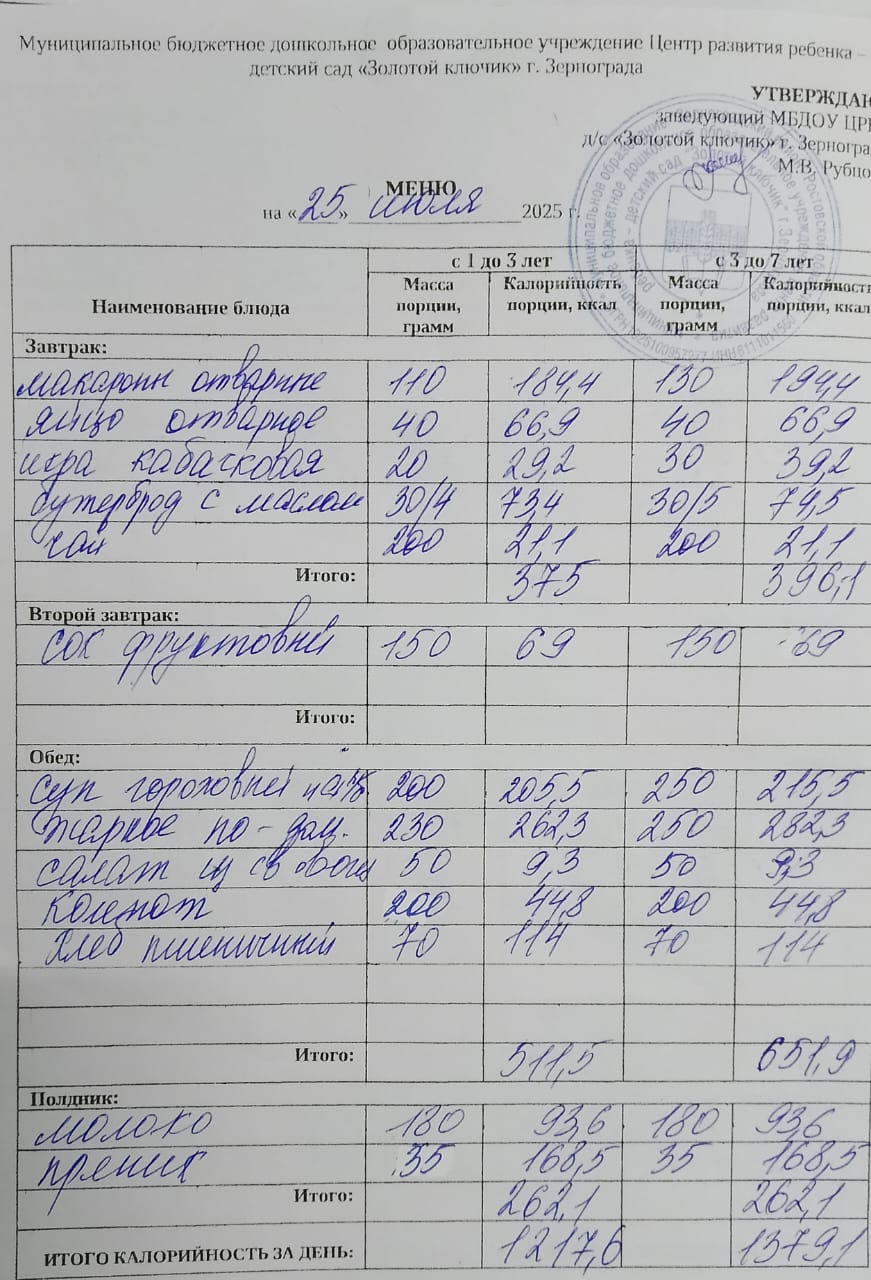 Муниципальное бюджетное дошкольное образовательное учреждение Центр развития ребенка –
детский сад «Золотой ключик» г. Зернограда
УТВЕРЖДАЮ
заведующий МБДОУ ЦРР
д/с «Золотой ключик» г. Зерногра
М.В. Рубцо
МЕНЮ
на «25» июля 2025 г.
Наименование блюда с 1 до 3 лет с 3 до 7 лет
Масса порции, грамм Калорийность порции, ккал Масса порции, грамм Калорийность порции, ккал
Завтрак:
макароны отварные 110 184,4 130 194,4
яйцо отварное 40 66,9 40 66,9
икра кабачковая 20 29,2 30 39,2
бутерброд с маслом 30/4 73,4 30/5 74,5
чай 200 21,1 200 21,1
Итого: 375 396,1
Второй завтрак:
сок фруктовый 150 69 150 69
Итого:
Обед:
суп гороховый 200 205,5 250 215,5
жаркое по-дом. 230 262,3 250 282,3
салат из св овощ 50 9,3 50 9,3
Компот 200 44,8 200 44,8
Хлеб пшеничный 70 114 70 114
Итого: 511,5 651,9
Полдник:
молоко 180 93,6 180 93,6
пряник 35 168,5 35 168,5
Итого: 262,1 262,1
ИТОГО КАЛОРИЙНОСТЬ ЗА ДЕНЬ: 1217,6 1379,1